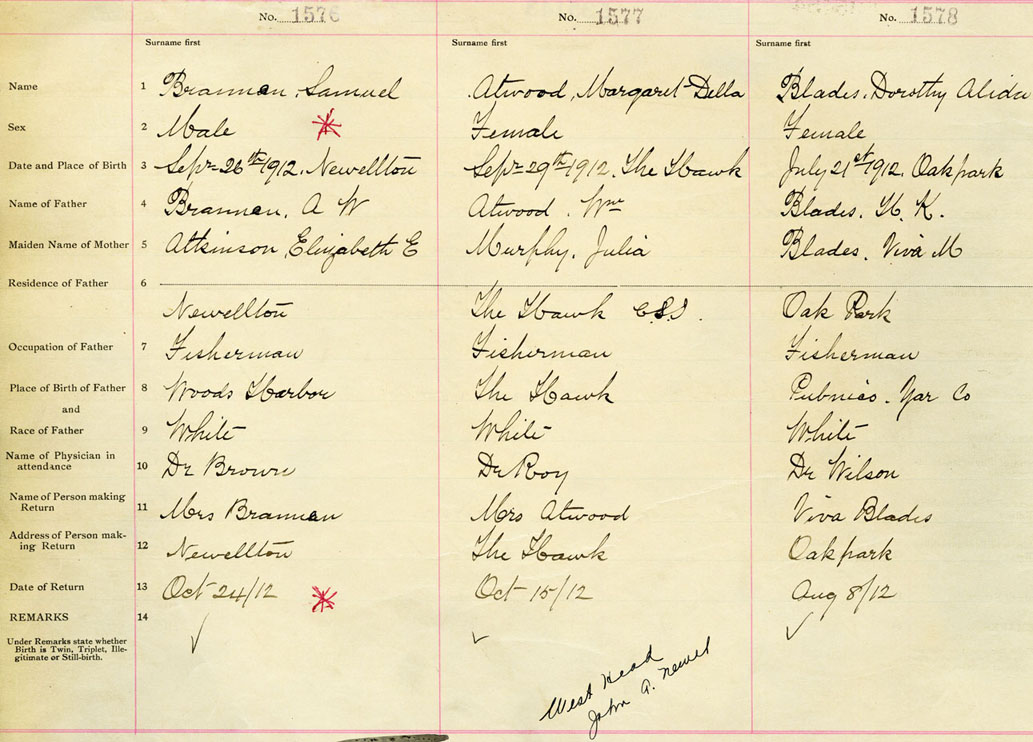 No. 1576 No. 1577 No. 1578
Surname first Surname first Surname first
Name 1 Brannen, Samuel Atwood, Margaret Della Blades, Dorothy Alida
Sex 2 Male Female Female
Date and Place of Birth 3 Sept 26th 1912. Newellton Sept 29th 1912. The Hawk July 21st 1912. Oakpark
Name of Father 4 Brannen, A W Atwood, Wm Blades. H. K.
Maiden Name of Mother 5 Atkinson, Elizabeth E Murphy, Julia Blades. Viva M
Residence of Father 6
Newellton The Hawk C.S.I. Oak Park
Occupation of Father 7 Fisherman Fisherman Fisherman
Place of Birth of Father 8 Woods Harbor The Hawk Pubnico. Yar Co
and
Race of Father 9 White White White
Name of Physician in
attendance 10 Dr Brown Dr Roy Dr Wilson
Name of Person making
Return 11 Mrs Brannen Mrs Atwood Viva Blades
Address of Person mak-
ing Return 12 Newellton The Hawk Oakpark
Date of Return 13 Oct 24/12 Oct 15/12 Aug 8/12
REMARKS 14
Under Remarks state whether
Birth is Twin, Triplet, Ille-
gitimate or Still-birth.
West Head
John A. Newel